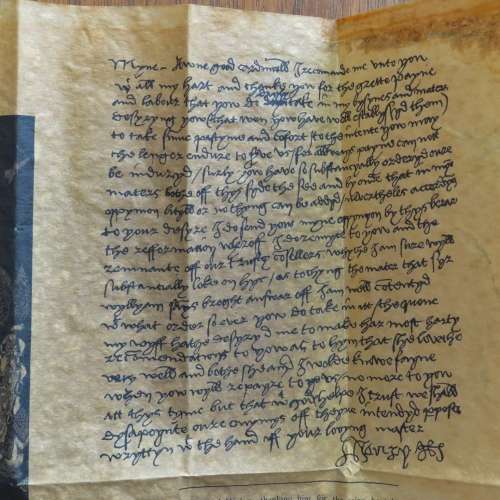 Myne awne good cardinall I recomande me unto yow
w all my hart and thanke yow for the grette payne
and labour that yow do dayly take in my bysynes and maters
desyryng yow that wen yow have well establyssyd them
to take summe pastyme and cofort to the intente yow may
the lenger endure to serve us for allways payne can nott
be induryd surly yow have so substancially orderyd oure
maters bothe off thys syde the see and byonde that in myne
oppynion lityll or no thyng can be addyd nevertheles accordyng
to your desyre I do send yow myne oppynyon by thys berar
the refformation wheroff I do remytte to yow and the
remnante off our trusty cosellers whyche I am sure wyll
substantially loke on hyt as tochyng the mater that syr
wyllyam says broght answar off I am well contentyd
w what order so ever yow do take in itt the quene
my wyff hathe desyryd me to make har most harty
recommendations to yow as to hym that she lovethe
very well and bothe she and I wolde knowe fayne
when yow wyll repayre to us no more to yow
att thys tyme but that w gods helpe I trust we shall
dysapoynte oure enymys off theyre intendyd purpose
wryttyn w the hand off your lovyng master
Henry
thanking him for the